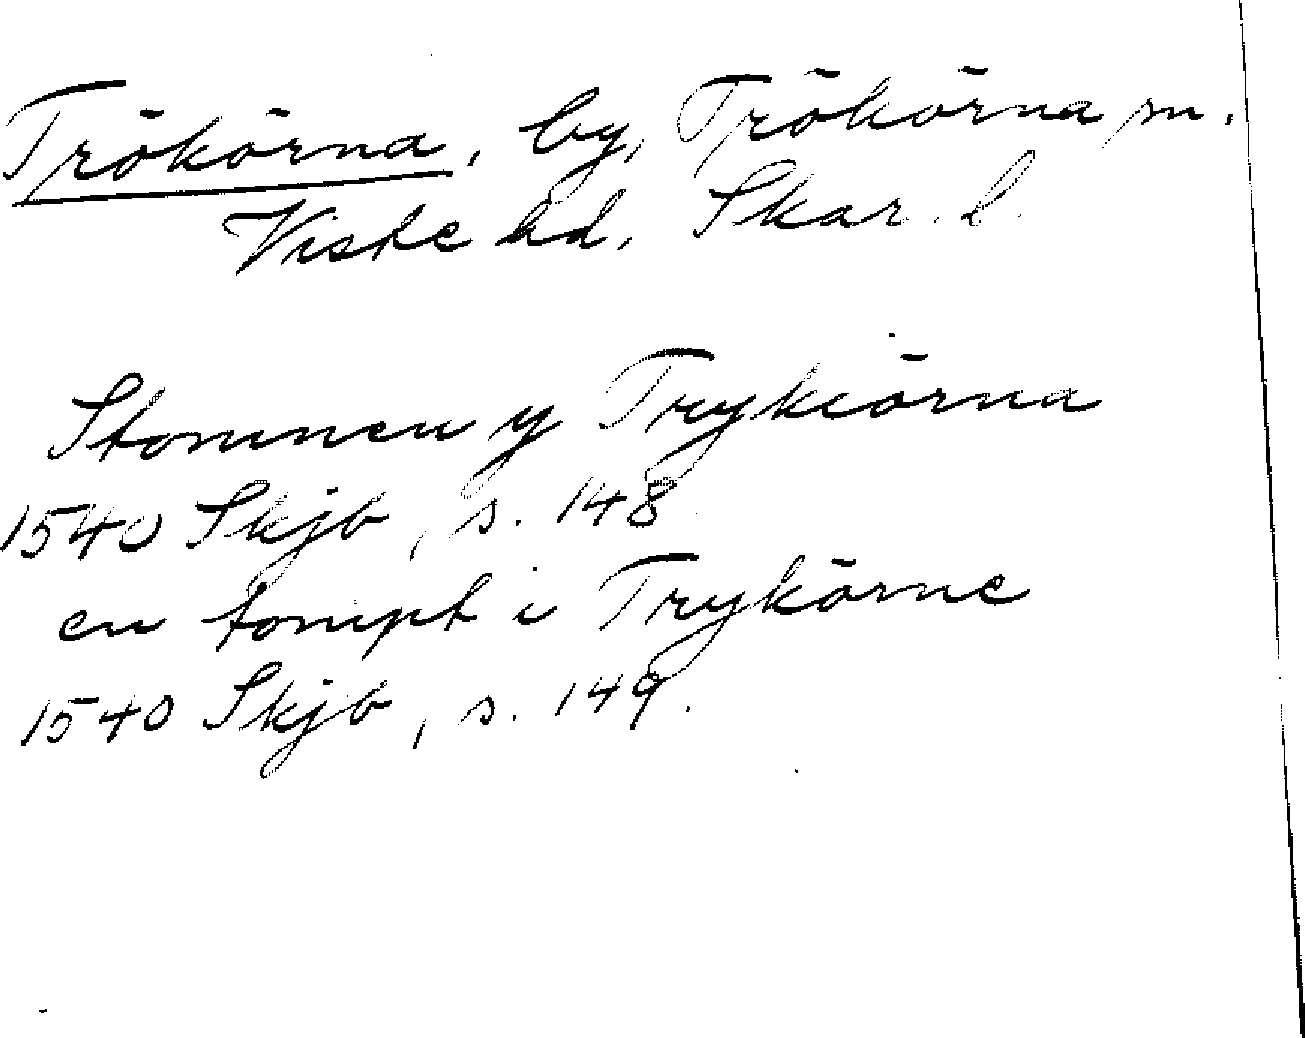 Trökörna, by, Trökörna sn.
Viste hd. Skar. l.
Stommen y Trykiörna
1540 Skjb, s. 148.
en tompt i Trykörne
1540 Skjb, s. 149.